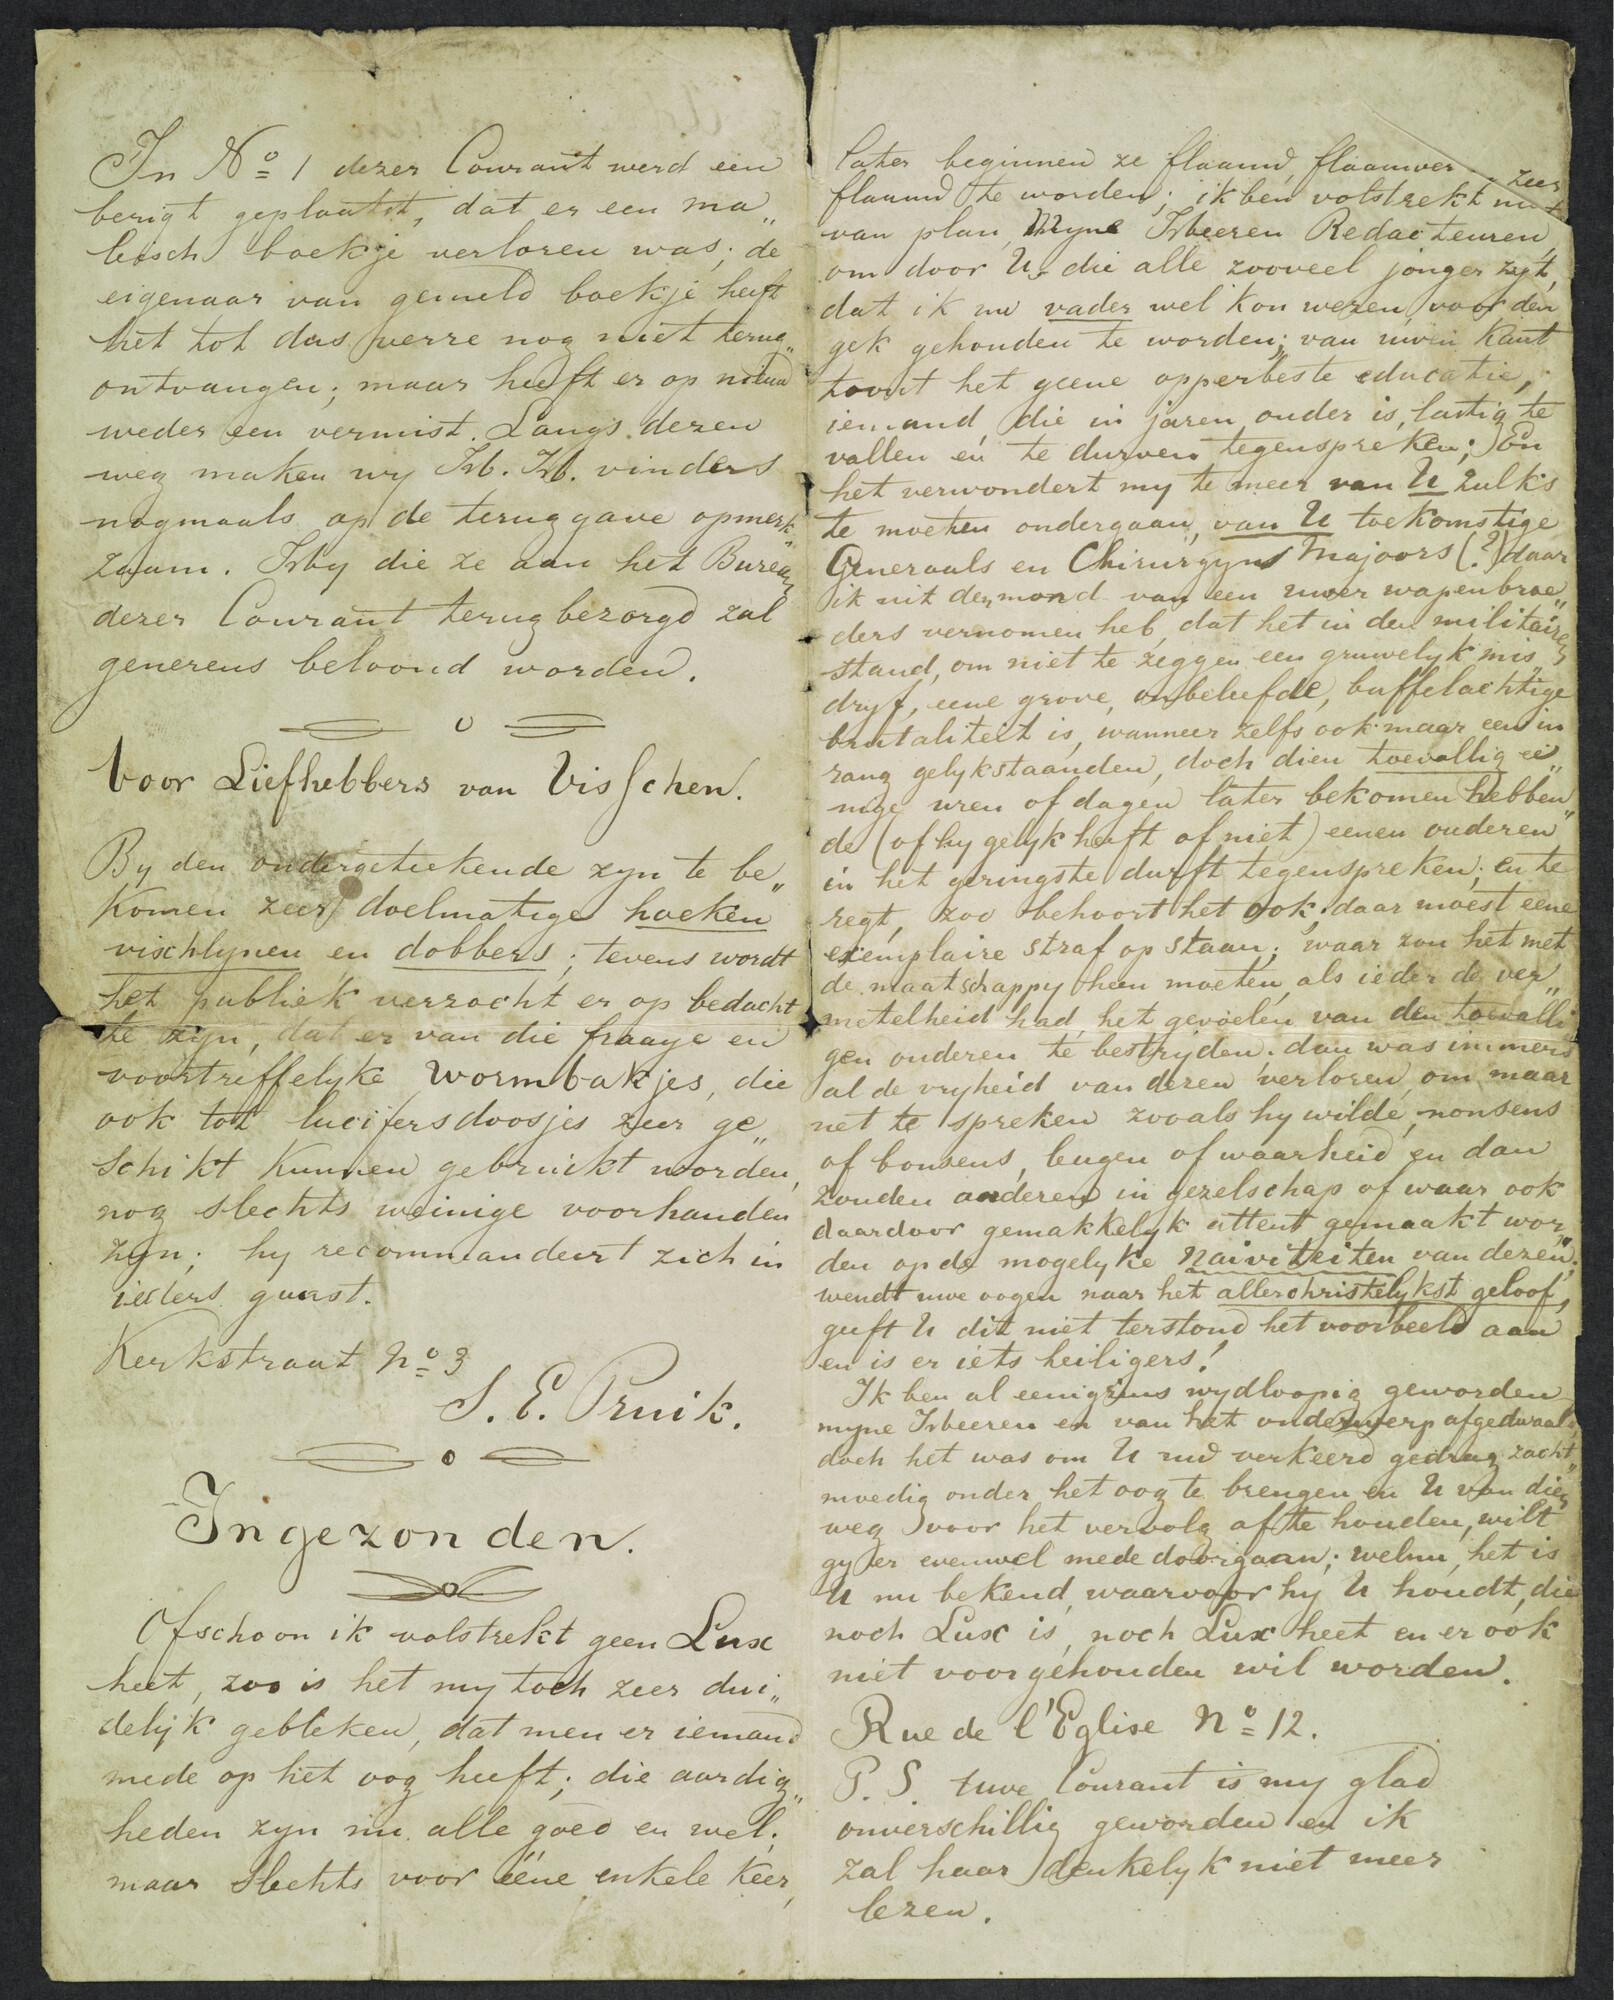 In No 1 dezer Courant werd een
berigt geplaatst, dat er een ma„
leisch boekje verloren was; de
eigenaar van gemeld boekje heeft
het tot dus verre nog niet terug„
ontvangen; maar heeft er op nieuw
weder een vermist. Langs dezen
weg maken wy HH. HH. vinders
nogmaals op de teruggave opmerk„
zaam. Hby die ze aan het Bureau
dezer Courant terugbezorgd zal
genereus beloond worden.
Voor Liefhebbers van Visschen.
By den ondergeteekende zyn te be„
komen zeer doelmatige hoeken
vischlynen en dobbers; tevens wordt
het publiek verzocht er op bedacht
te zyn, dat er van die fraaye en
voortreffelyke wormbakjes, die
ook tot lucifersdoosjes zeer ge„
schikt kunnen gebruikt worden,
nog slechts weinige voorhanden
zyn; hy recommandeert zich in
ieders gunst.
Kerkstraat No 3
S. E. Pruik.
Ingezonden.
Ofschoon ik volstrekt geen Lux
heet, zoo is het my toch zeer dui„
delyk gebleken, dat men er iemand
mede op het oog heeft; die aardig„
heden zyn nu alle goed en wel;
maar slechts voor ééne enkele keer,
later beginnen ze flaauw, flaauwer zeer
flaauw te worden; ik ben volstrekt niet
van plan, Myne Hbeeren Redacteuren,
om door U, die alle zooveel jonger zyt,
dat ik uw vader wel kon wezen, voor den
gek gehouden te worden; van uwen kant
toont het geene opperbeste educatie,
iemand, die in jaren ouder is, lastig te
vallen en te durven tegenspreken; En
het verwondert my te meer van U zulks
te moeten ondergaan, van U toekomstige
Generaals en Chirurgyns Majoors (?) daar
ik uit den mond van een uwer wapenbroe„
ders vernomen heb, dat het in den militairen
stand, om niet te zeggen een gruwelyk mis„
dryf, eene grove, onbeleefde, buffelachtige
brutaliteit is, wanneer zelfs ook maar een in
rang gelykstaanden, doch dien toevallig ee„
nige uren of dagen later bekomen hebben„
de (of hy gelyk heeft of niet) eenen ouderen
in het geringste durft tegenspreken; en te
regt, zoo behoort het ook; daar moest eene
exemplaire straf op staan; waar zou het met
de maatschappy heen moeten, als ieder de ver„
metelheid had, het gevoelen van den toevalli
gen ouderen te bestryden; dan was immers
al de vryheid van dezen verloren, om maar
net te spreken zooals hy wilde, nonsens
of bonsens, leugen of waarheid en dan
zouden anderen in gezelschap of waar ook
daardoor gemakkelyk attent gemaakt wor„
den op de mogelyke naiviteiten van dezen;
wendt uwe oogen naar het allerchristelykst geloof,
geeft U dit niet terstond het voorbeeld aan
en is er iets heiligers!
Ik ben al eenigzins wydloopig geworden
myne Hbeeren en van het onderwerp afgedwaald,
doch het was om U uw verkeerd gedrag zacht„
moedig onder het oog te brengen en U van dien
weg voor het vervolg af te houden, wilt
gy er evenwel mede doorgaan; welnu, het is
U nu bekend, waarvoor hy U houdt, die
noch Lux is, noch Lux heet en er ook
niet voor gehouden wil worden.
Rue de l'Eglise No 12.
P. S. Uwe Courant is my glad
onverschillig geworden en ik
zal haar denkelyk niet meer
lezen.